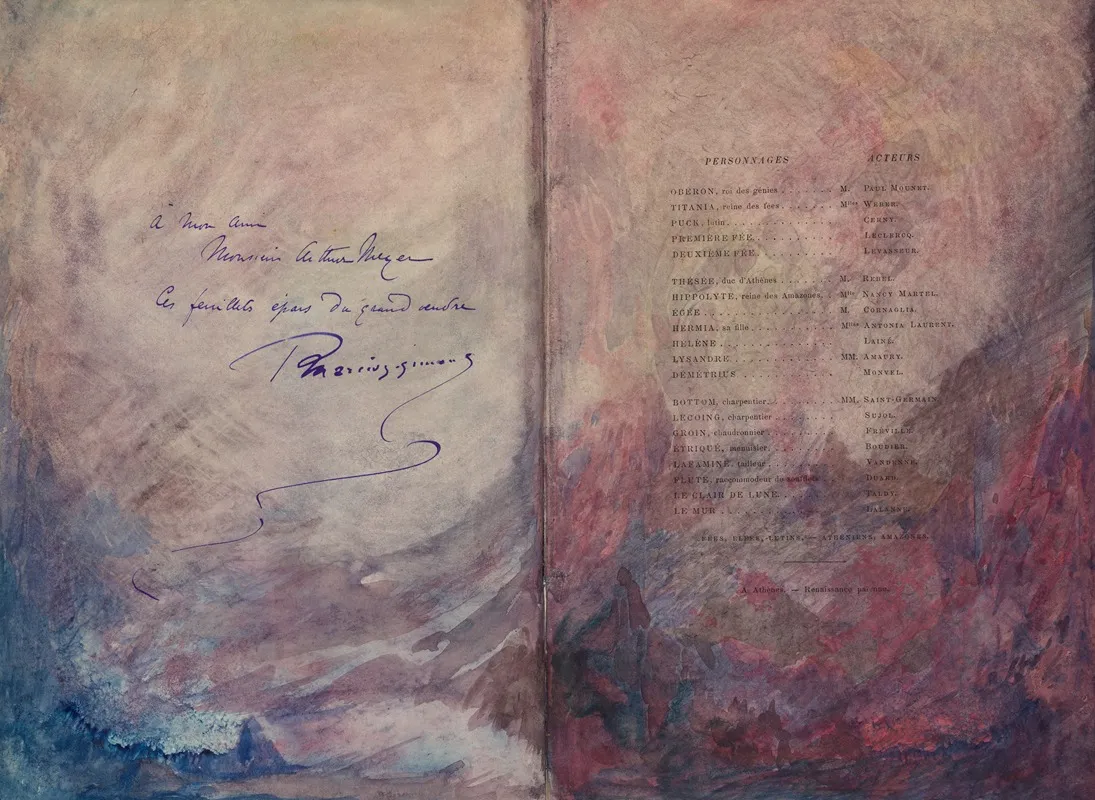 à mon ami
Monsieur Arthur Meyer
Ces feuillets épars du grand
PERSONNAGES ACTEURS
OBERON, roi des génies . . . . . . . M. PAUL MOUNET.
TITANIA, reine des fées . . . . . . . Mlles WEBER.
PUCK, lutin . . . . . . . CERNY.
PREMIÈRE FÉE . . . . . . . LECLERCQ.
DEUXIÈME FÉE . . . . . . . LEVASSEUR.
THÉSÉE, duc d'Athènes . . . . . . . M. REBEL.
HIPPOLYTE, reine des Amazones. Mlle NANCY MARTEL.
EGÉE . . . . . . . M. CORNAGLIA.
HERMIA, sa fille . . . . . . . Mlles ANTONIA LAURENT.
HÉLÈNE . . . . . . . LAINÉ.
LYSANDRE . . . . . . . MM. AMAURY.
DEMETRIUS . . . . . . . MONVEL.
BOTTOM, charpentier . . . . . . . MM. SAINT-GERMAIN
LECOING, charpentier . . . . . . . SUJOL.
GROIN, chaudronnier . . . . . . . FRÉVILLE.
ETRIQUÉ, menuisier . . . . . . . BOUDIER.
LAFAMINE, tailleur . . . . . . . VANDENNE.
FLUTE, raccommodeur de soufflets . . DUARD.
LE CLAIR DE LUNE . . . . . . . TALDY.
LE MUR . . . . . . .
FÉES, ELFES, LUTINS, — ATHÉNIENS, AMAZONES.
A Athènes. — Renaissance païenne.